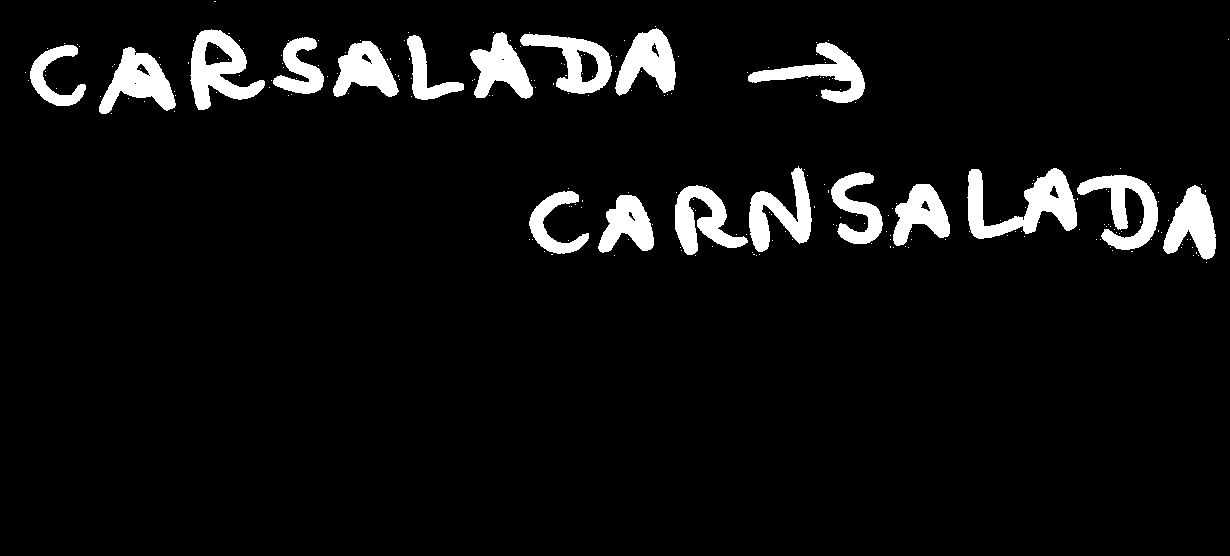 CARSALADA →
CARNSALADA